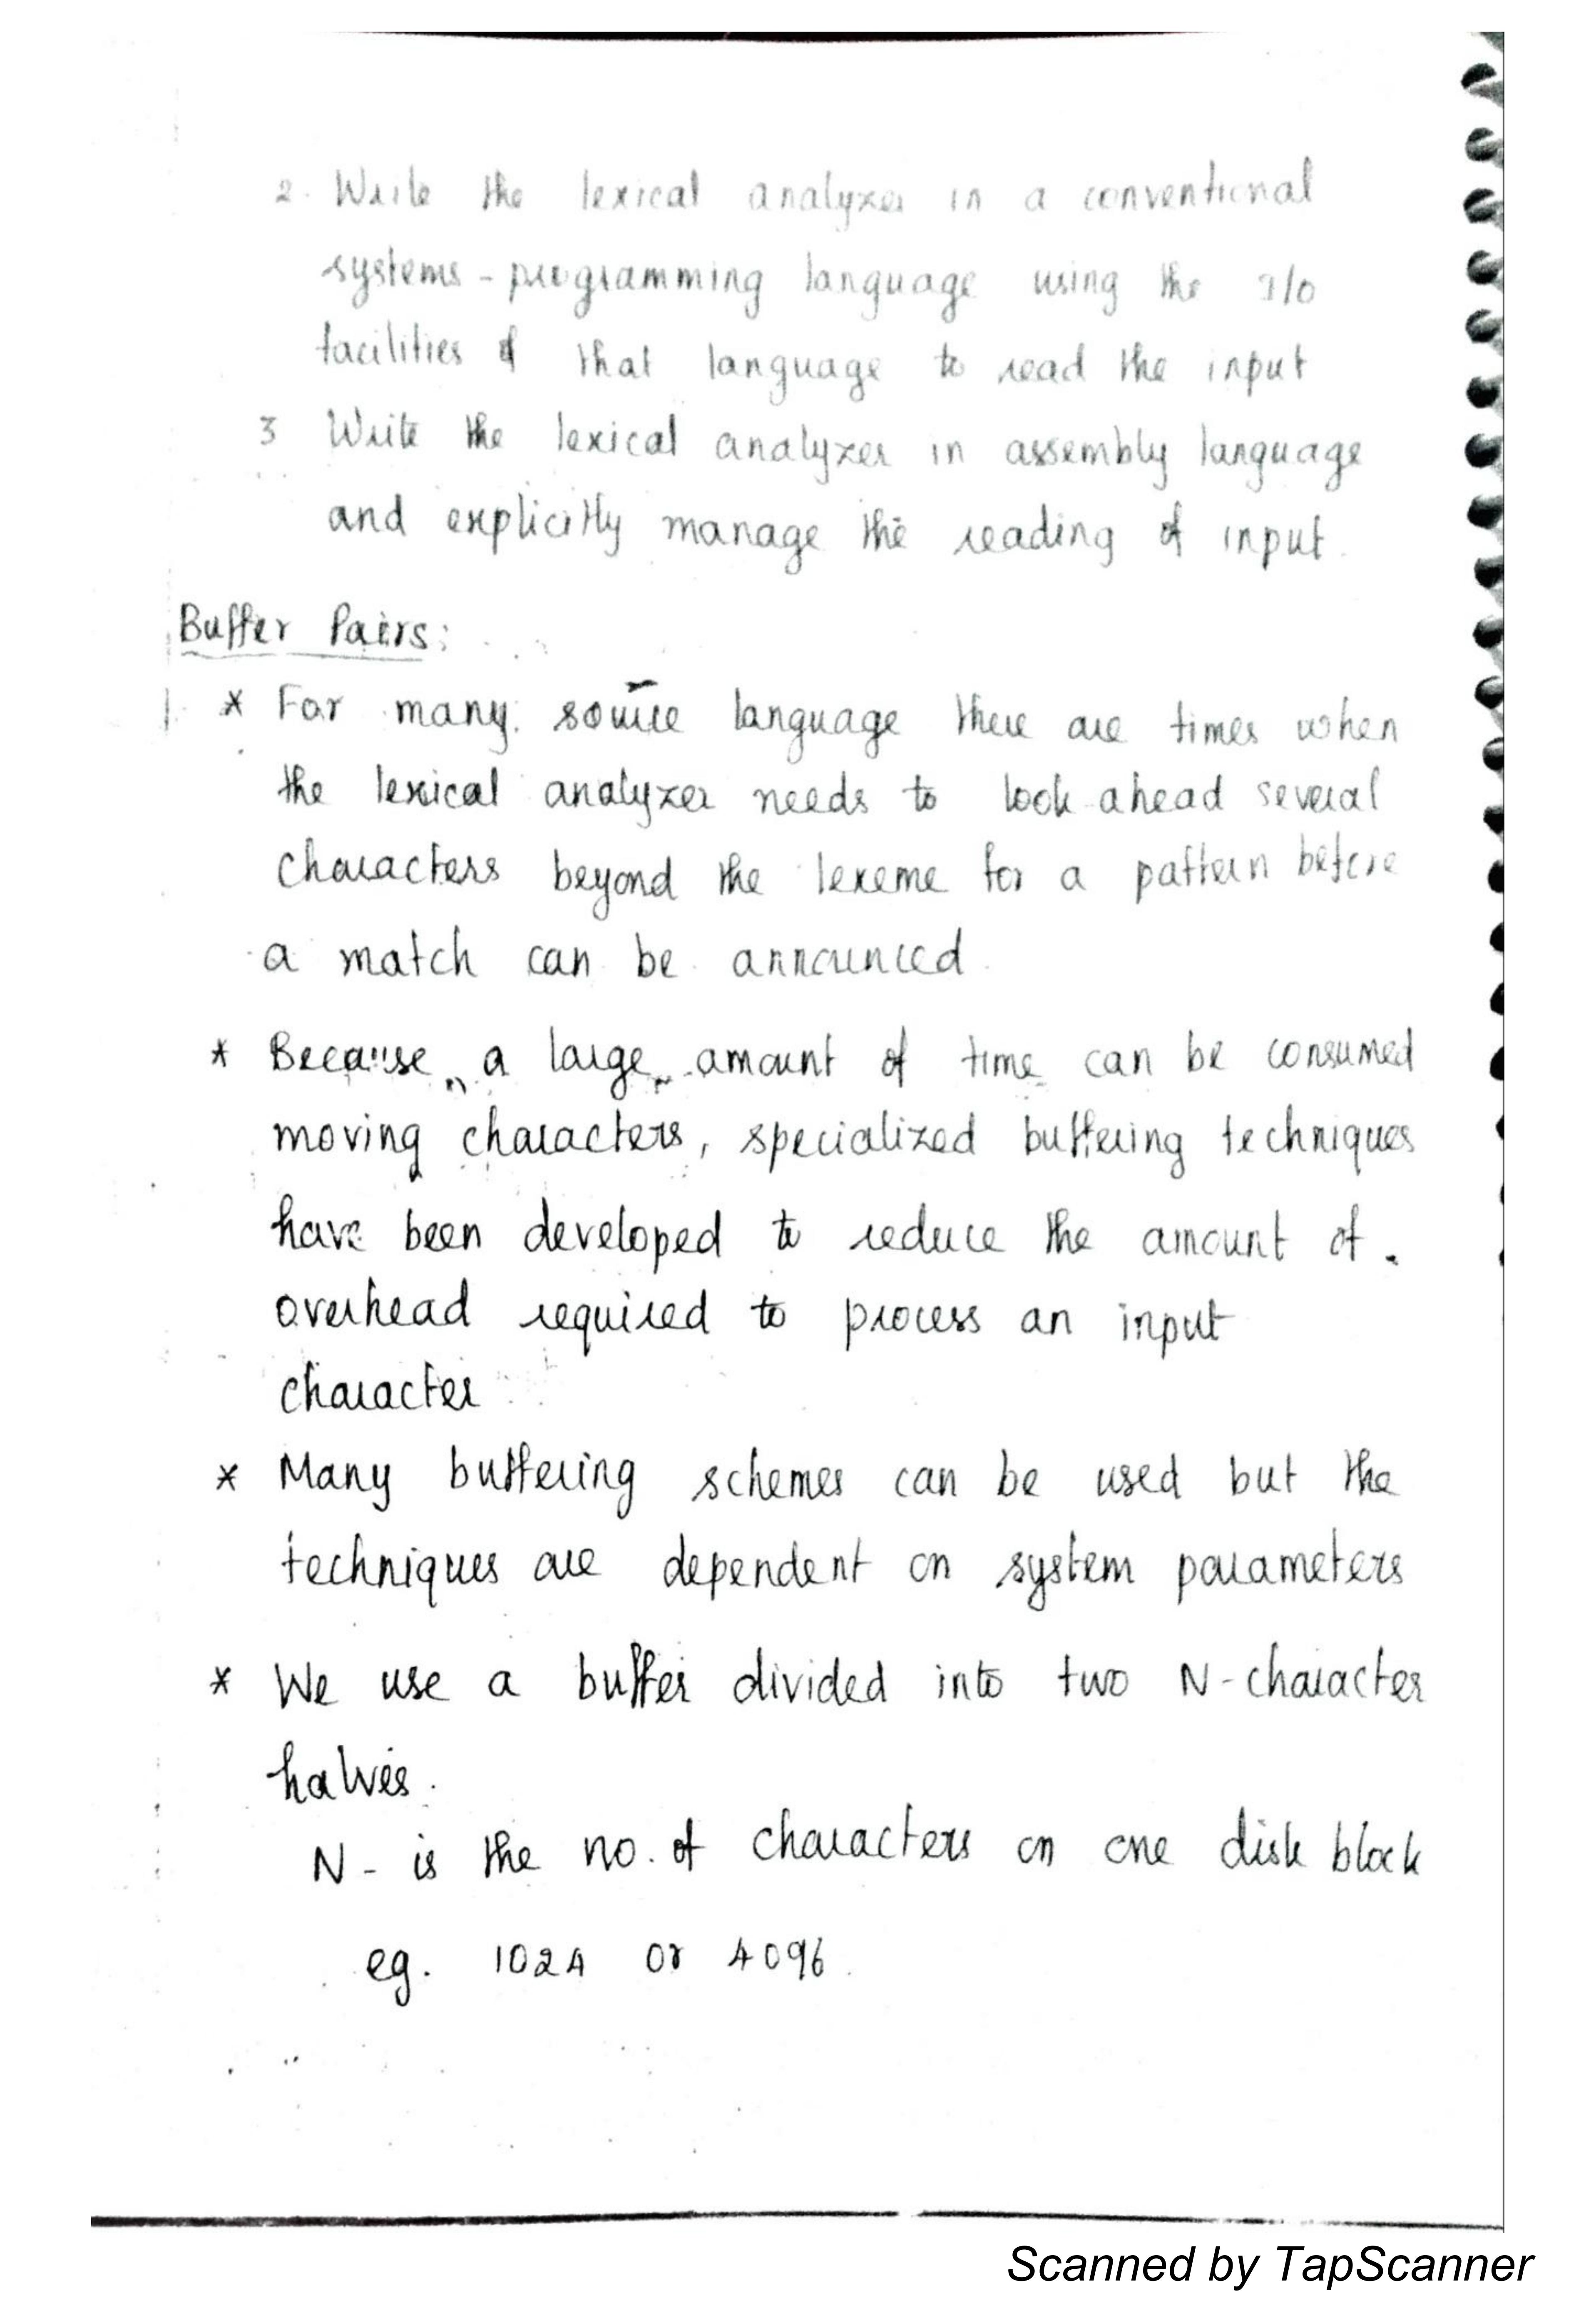 2. Write the lexical analyzer in a conventional
systems-programming language using the I/O
facilities of that language to read the input
3 Write the lexical analyzer in assembly language
and explicitly manage the reading of input.
Buffer Pairs:
* For many source language there are times when
the lexical analyzer needs to look ahead several
characters beyond the lexeme for a pattern before
a match can be announced
* Because a large amount of time can be consumed
moving characters, specialized buffering techniques
have been developed to reduce the amount of
overhead required to process an input
character
* Many buffering schemes can be used but the
techniques are dependent on system parameters
* We use a buffer divided into two N-character
halves.
N- is the no. of characters on one disk block
eg. 1024 or 4096.
Scanned by TapScanner